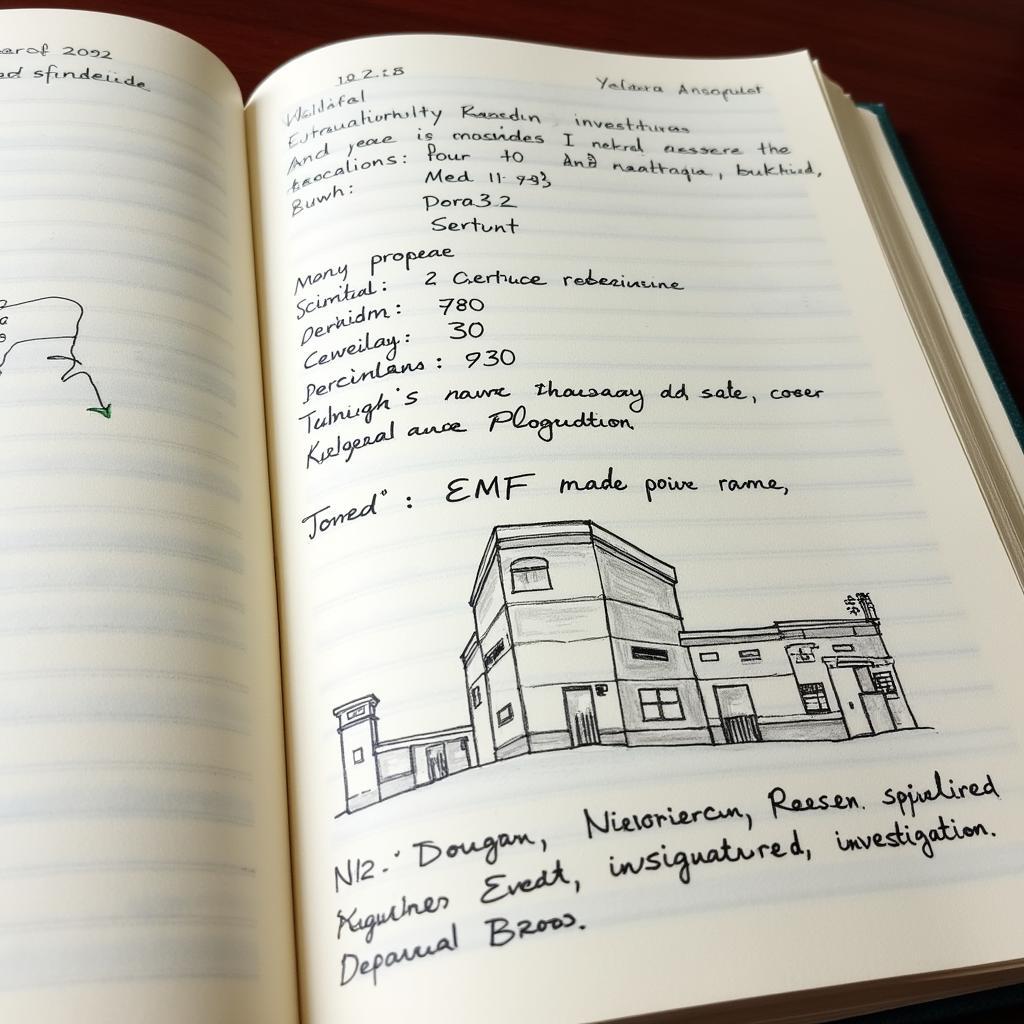 ar of 2092
ad sfindeiide
10.2.18
Yelawra Ansopulet
Investituras
And yeae is mosides I nekral assere the
tocalions: Pour to And naattaqua, bukhied,
Buwh: Med 11. 993
Dora3.2
Sertunt
Many propeae
Scimtial: 2 Certuce rebeziusine
Derhidm: 780
Ceweilay: 30
Percinlans: 930
Tulniugh's nawre thousaay dd sate, coser
Kelgeral auce Plogudtion
Tomed": EMF made poiwe rame,
N12.: Dougan, Nieloriercun, Reesen. spiulired
Evedt, insignatured, investigation.
Deparual B200s.